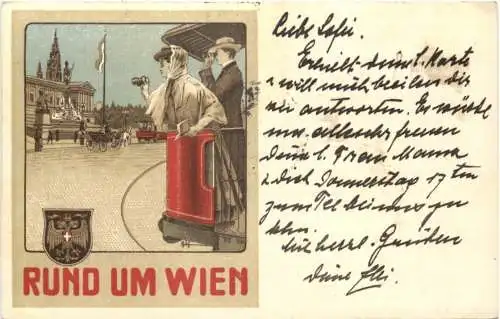 RUND UM WIEN
Liebe Sofie.
Erhielt deine l. Karte
u will mich beeilen dir
zu antworten. Es würde
uns alle sehr freuen
deine l. Frau Mama
u dich Donnerstag 17ten
zum Tee bei uns zu
sehn.
Mit herzl. Grüßen
deine